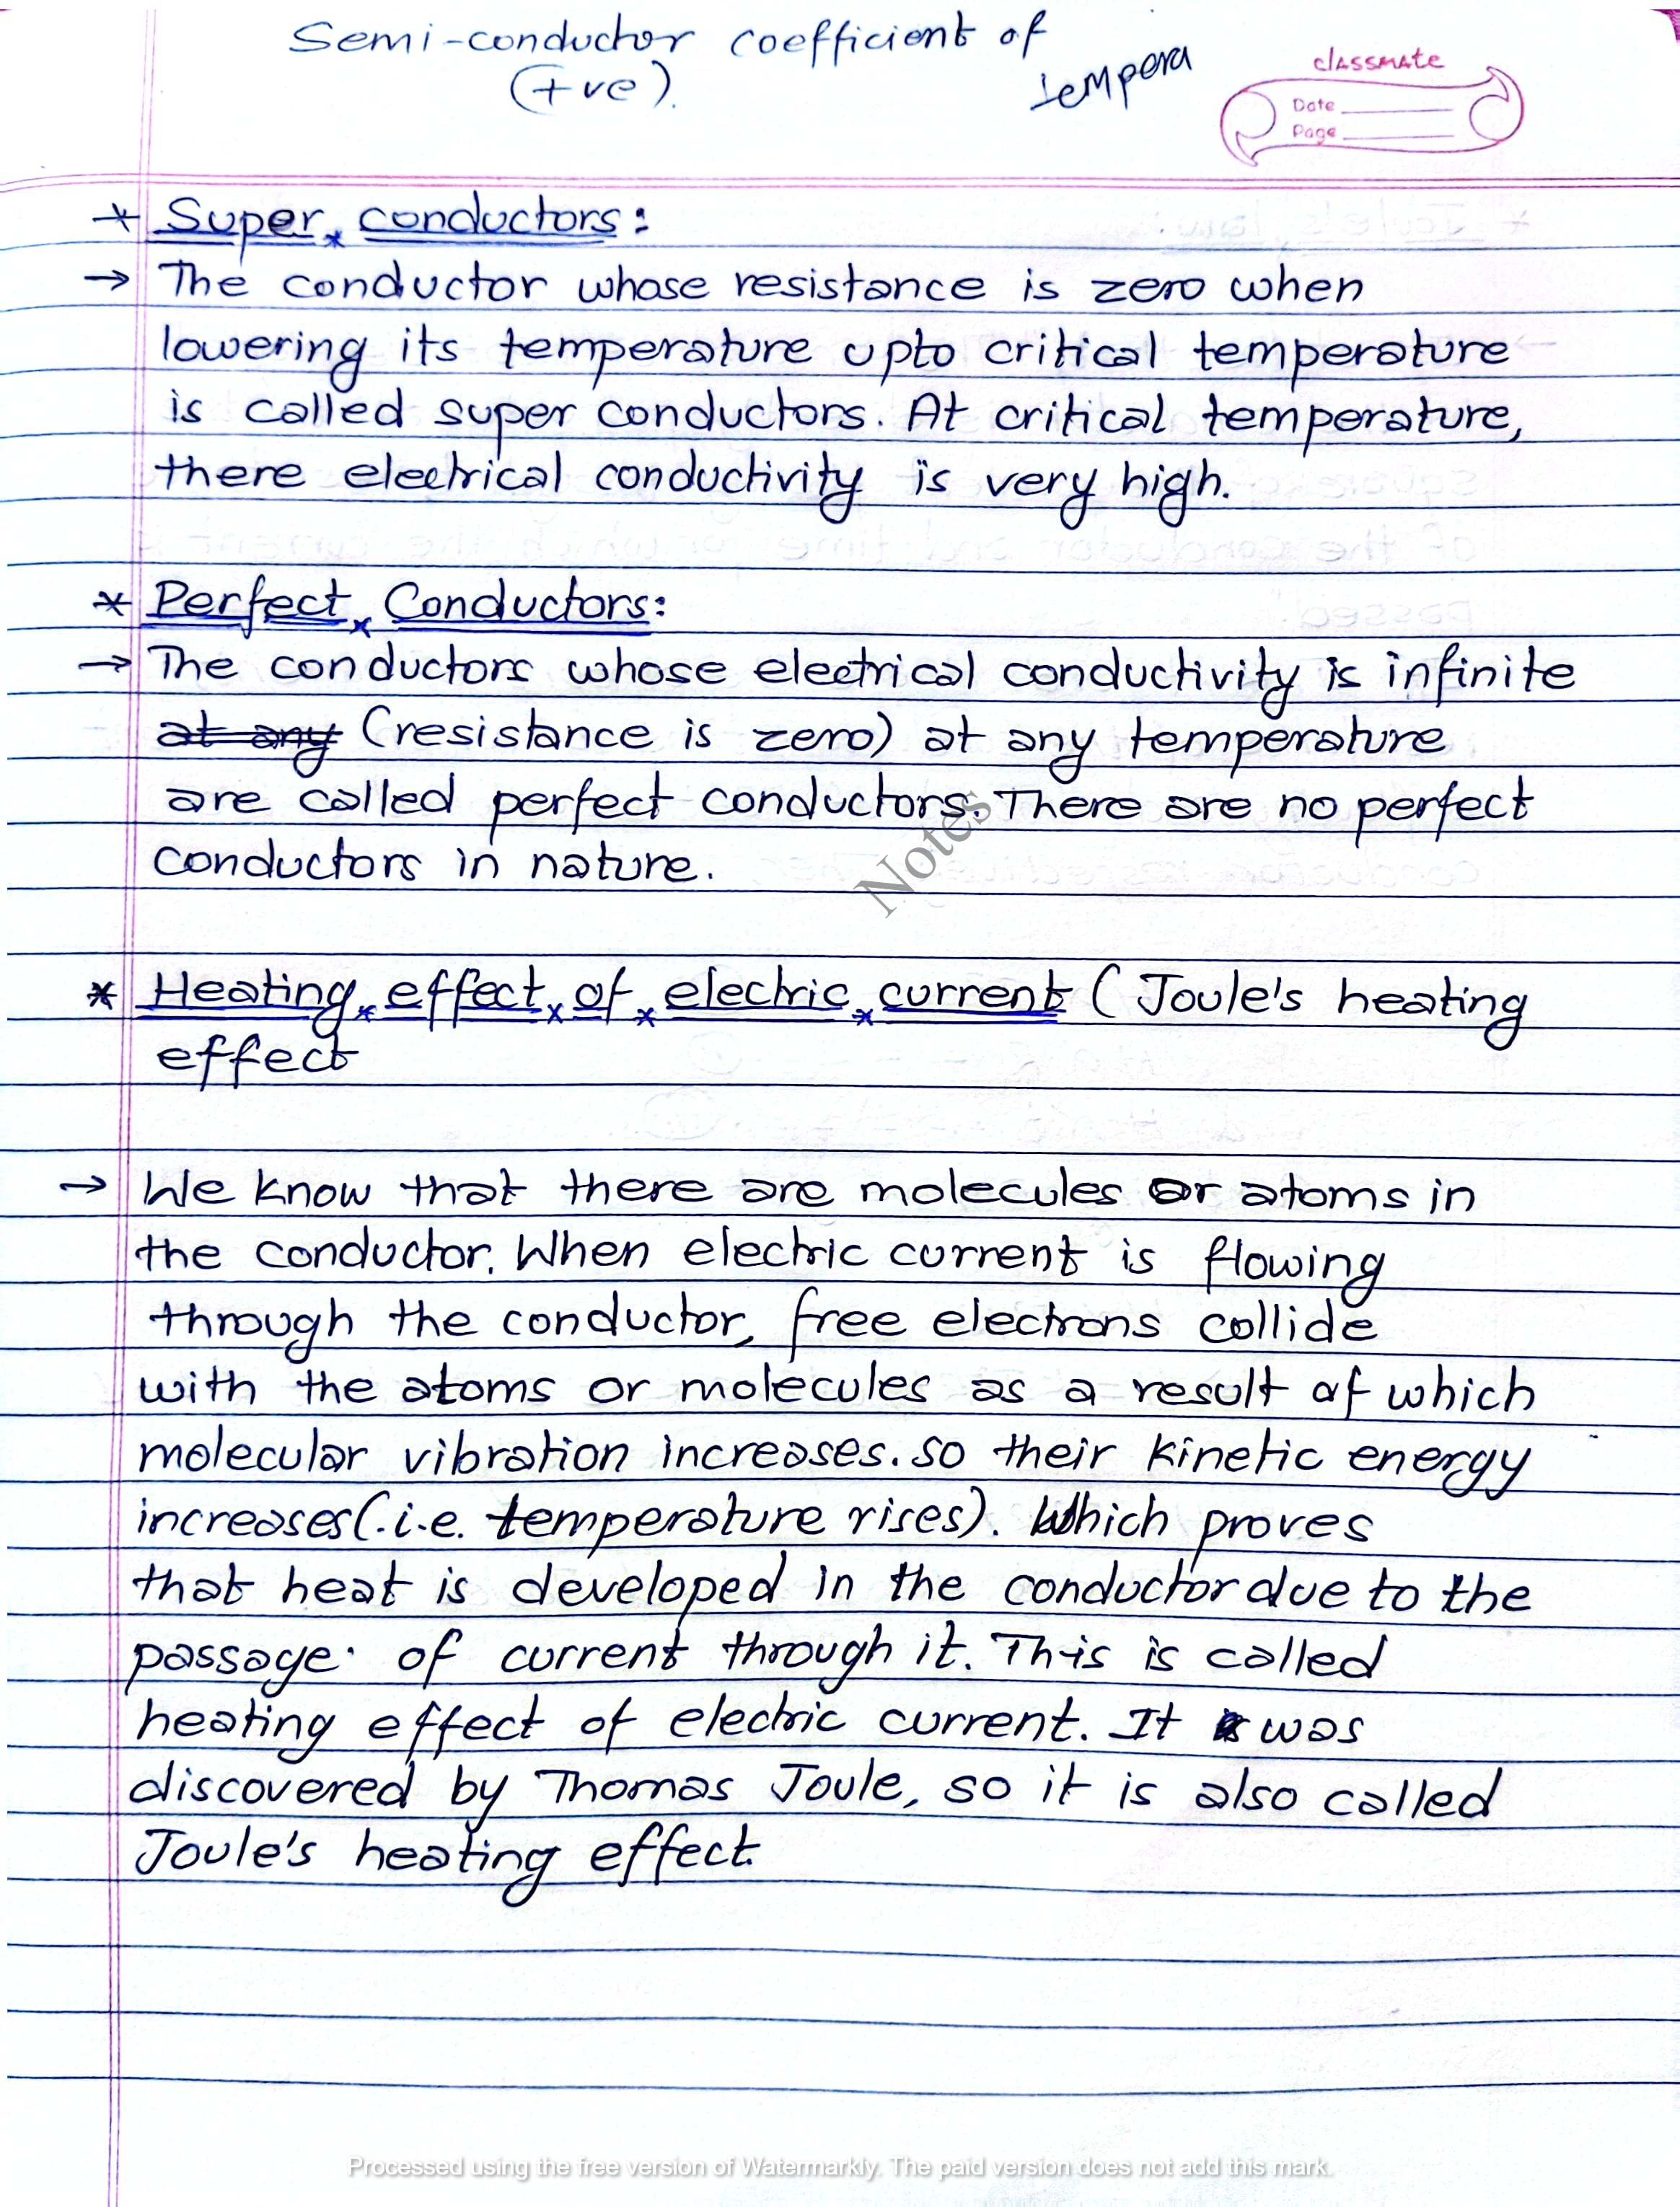 Semi-conductor coefficient of
tempera
(+ve).
classmate
Date
Page
* Super conductors:
→ The conductor whose resistance is zero when
lowering its temperature upto critical temperature
is called super conductors. At critical temperature,
there electrical conductivity is very high.
* Perfect Conductors:
→ The conductors whose electrical conductivity is infinite
at any (resistance is zero) at any temperature
are called perfect conductors. There are no perfect
conductors in nature.
Notes
* Heating effect of electric current (Joule's heating
effect
→ We know that there are molecules or atoms in
the conductor. When electric current is flowing
through the conductor, free electrons collide
with the atoms or molecules as a result of which
molecular vibration increases. so their kinetic energy
increases(.i.e. temperature rises). Which proves
that heat is developed in the conductor due to the
passage of current through it. This is called
heating effect of electric current. It was
discovered by Thomas Joule, so it is also called
Joule's heating effect.
Processed using the free version of Watermarkly. The paid version does not add this mark.